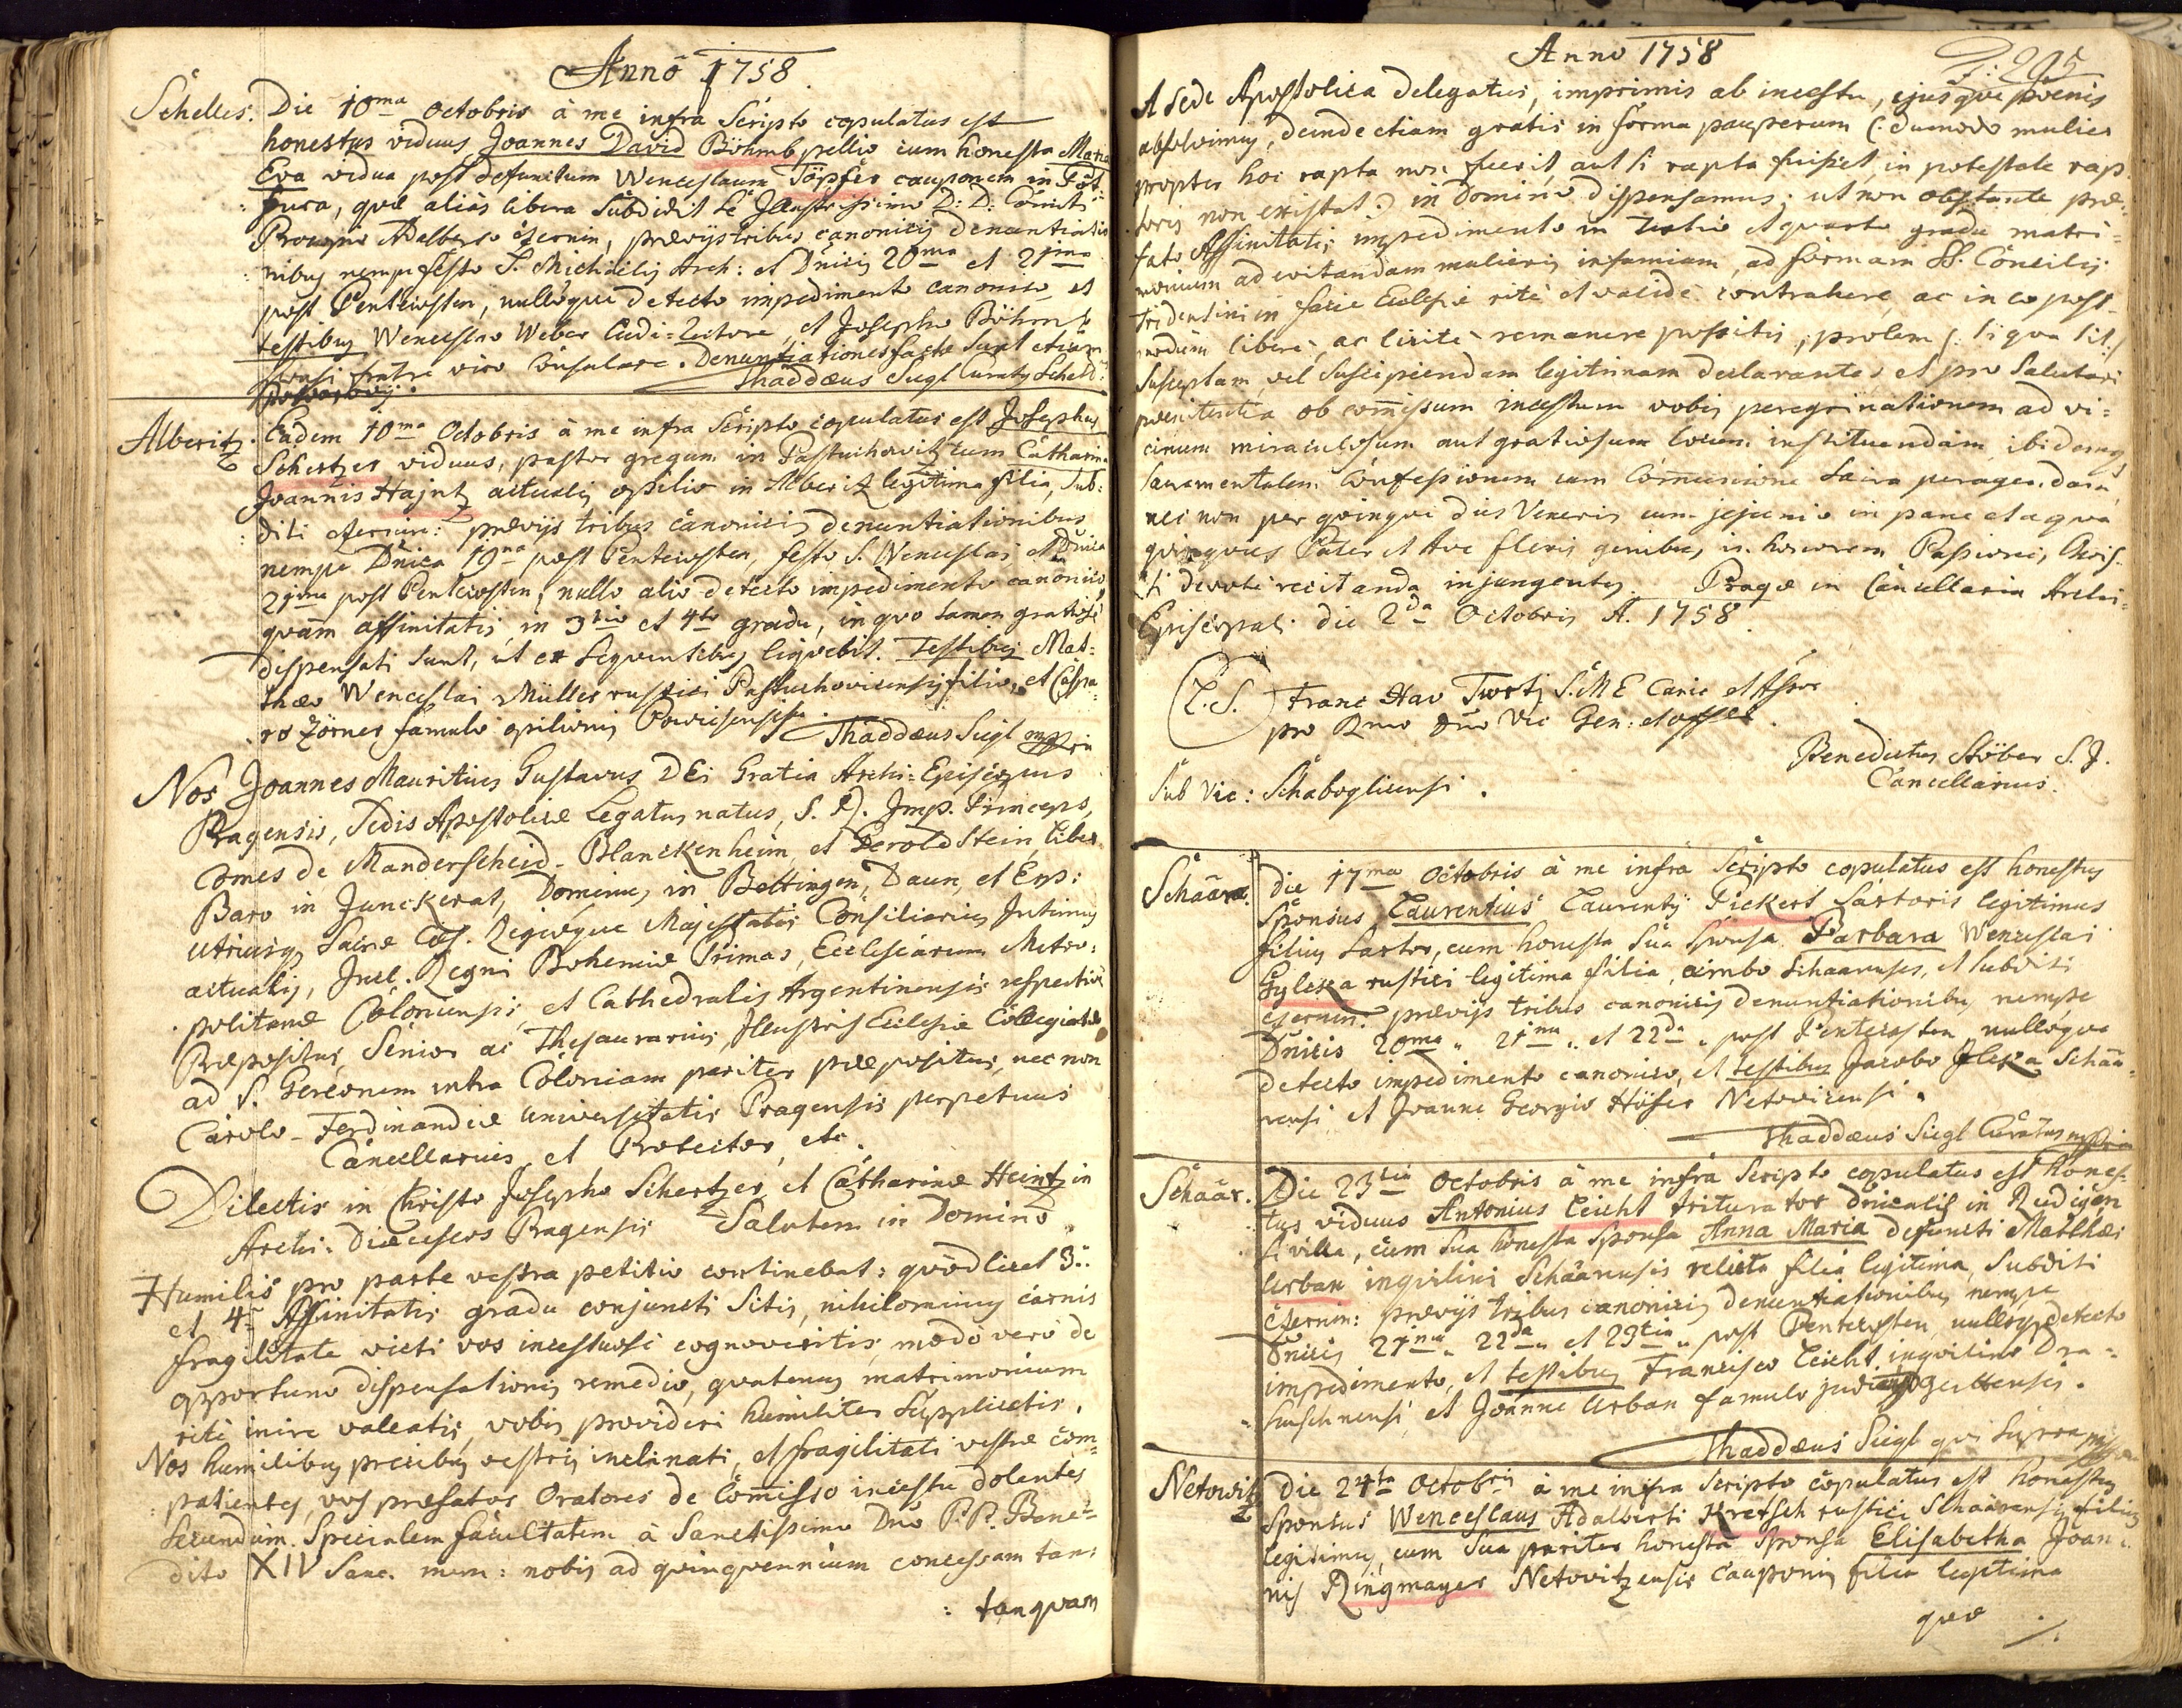 Anno 1758.
Schelles. Die 10ma Octobris à me infra Scripto copulatus est
honestus viduus Joannes David Böhmb pellio cum honesta Maria
Eva vidua post defunctum Wenceslaum Töpfer cauponem in
, quæ alias libera Subdidit se Illustrissimo D: D: Comiti
Procopio Adalberto Czernin, prævijs tribus canonicis denuntiatio
nibus nempe festo S. Michaëlis Arch: et Dnicis 20ma et 21ma
post Pentecosten, nullôque detecto impedimento canonico, et
testibus Wenceslao Weber Ludi-Rectore, et Josepho Böhmb
sponsi fratre viro Consulare. Denuntiationes factæ sunt etiam
Thaddæus Siegl Curatus
Alberitz. Eadem 10ma Octobris à me infra Scripto copulatus est Josephus
Schertzer viduus, pastor gregum in Pastuchowitz cum Catharina
Joannis Hajntz actualis opilio in Alberitz legitima filia, Sub:
diti Czernin: prævijs tribus canonicis denuntiationibus
nempe Dnica 19na post Pentecosten, festo S. Wenceslai et Dnica
21ma post Pentecosten, nullo alio detecto impedimento canonico,
quàm affinitatis in 3tio et 4to gradu, in quo tamen gratiosè
dispensati sunt, ut ex sequentibus liquebit. Testibus Mat:
thæo Wenceslai Müller rustici Pastuchovicensis filio, et Caspa:
ro Zörner famulo opilionis
Thaddæus Siegl mppria
Nos Joannes Mauritius Gustavus DEi Gratia Archi-Episcopus
Pragensis, Sedis Apostolicæ Legatus natus, S. R. Imp. Princeps,
Comes de Manderscheid-Blanckenheim, et Geroldstein Liber
Baro in Junckerat, Dominus in Bettingen, Daun, et Erp:
utriusq Sacræ Cæs. Regiæque Majestatis Consiliarius Intimus
actualis, Incl. Regni Bohemiæ Primas, Ecclesiarum Metro:
politanæ Coloniensis, et Cathedralis Argentinensis respectivè
Præpositus, Senior ac Thesaurarius, Illustris Ecclesiæ Collegiatæ
ad S. Gereonem intra Coloniam pariter præpositus, nec non
Carolo-Ferdinandeæ Universitatis Pragensis perpetuus
Cancellarius, et Protector, etc.
Dilectis in Christo Josepho Schertzer, et Catharinæ Heintz in
Archi-Diœceseos Pragensis Salutem in Domino.
Humilis pro parte vestra petitio continebat: quòd licet 3.
et 4. Affinitatis gradu conjuncti sitis, nihilominus carnis
fragilitate victi vos incestuosè cognoveritis, modo verò de
opportuno dispensationis remedio, quatenus matrimonium
ritè inire valeatis, vobis provideri humiliter supplicatis.
Nos humilibus precibus vestris inclinati, et fragilitati vestræ com:
patientes, vos præfatos Oratores de Commisso incestu dolentes
secundùm Specialem facultatem à Sanctissimo Dno P.P. Bene:
dicto XIV Sanc. mem: nobis ad quinquennium concessam tan:
: tanquam
Anno 1758
F: 205
A Sede Apostolica delegatus, imprimis ab incestu, ejusque pœnis
absolvimus, deinde etiam gratis in forma pauperum (: dummodo mulier
propter hoc rapta non fuerit, aut si rapta fuisset, in potestate rap:
toris non existat:) in Domino dispensamus: ut non obstante præ:
fato Affinitatis impedimento in tertio et quarto gradu matri:
monium ad evitandam mulieris infamiam, ad formam SS. Concilij
Tridentini in facie Ecclesiæ ritè et validè contrahere, ac in eo post-
modùm liberè, ac licitè remanere possitis, prolem (: si qua sit:)
susceptam, vel suscipiendam legitimam declarantes, et pro salutari
pœnitentia ob commissum incestum vobis peregrinationem ad vi:
cinum miraculosum aut gratiosum locum instituendam, ibidemq
Sacramentalem Confessionem cum Communione Sacra peragendam,
nec non per quinque dies Veneris cum jejunio in pane et aqua
quinquies Pater et Ave flexis genibus in honorem Passionis Chris:
ti devotè recitanda injungentes. Pragæ in Cancellaria Archi:
Episcopali die 2da Octobris A. 1758.
(L.S.) Franc
pro Rmo Dno Vic Gen: et Offici
Benedictus Stöber S. J.
Cancellarius.
Sub Vic: Schabogliensi.
Schaar. Die 17ma Octobris à me infra Scripto copulatus est honestus
Sponsus Laurentius Laurentij Pickert Sartoris legitimus
filius Sartor, cum honesta sua Sponsa Barbara Wenceslai
Gyleka rustici legitima filia, ambo Schaarenses, et Subditi
Czernin: prævijs tribus canonicis denuntiationibus, nempe
Dnicis 20ma, 21ma, et 22da post Pentecosten nullóque
detecto impedimento canonico, et testibus Jacobo Jleka Schaa:
rensi et Joanne Georgio Höfer Netovicensi.
Thaddæus Siegl Curatus mppria
Schaar. Die 23tia Octobris à me infra Scripto copulatus est hones-
tus viduus Antonius Leicht triturator Dnicalis in Rudigen
villa, cum sua honesta Sponsa Anna Maria defuncti Matthæi
Urban inquilini Schaarensis relicta filia legitima, Subditi
Czernin: prævijs tribus canonicis denuntiationibus nempe
Dnicis 21ma, 22da, et 23tia post Pentecosten, nulloq detecto
impedimento, et testibus Francisco Leicht inquilino Dra:
huschnensi, et Joanne Urban famulo
Thaddæus Siegl qui supra mppria
Netowitz Die 24ta Octobris à me infra Scripto copulatus est honestus
Sponsus Wenceslaus Adalberti Kretsch rustici Schaarensis filius
legitimus, cum sua pariter honesta Sponsa Elisabetha Joan:
nis Ringmayer Netovitzensis Cauponis filia legitima
quæ ./.